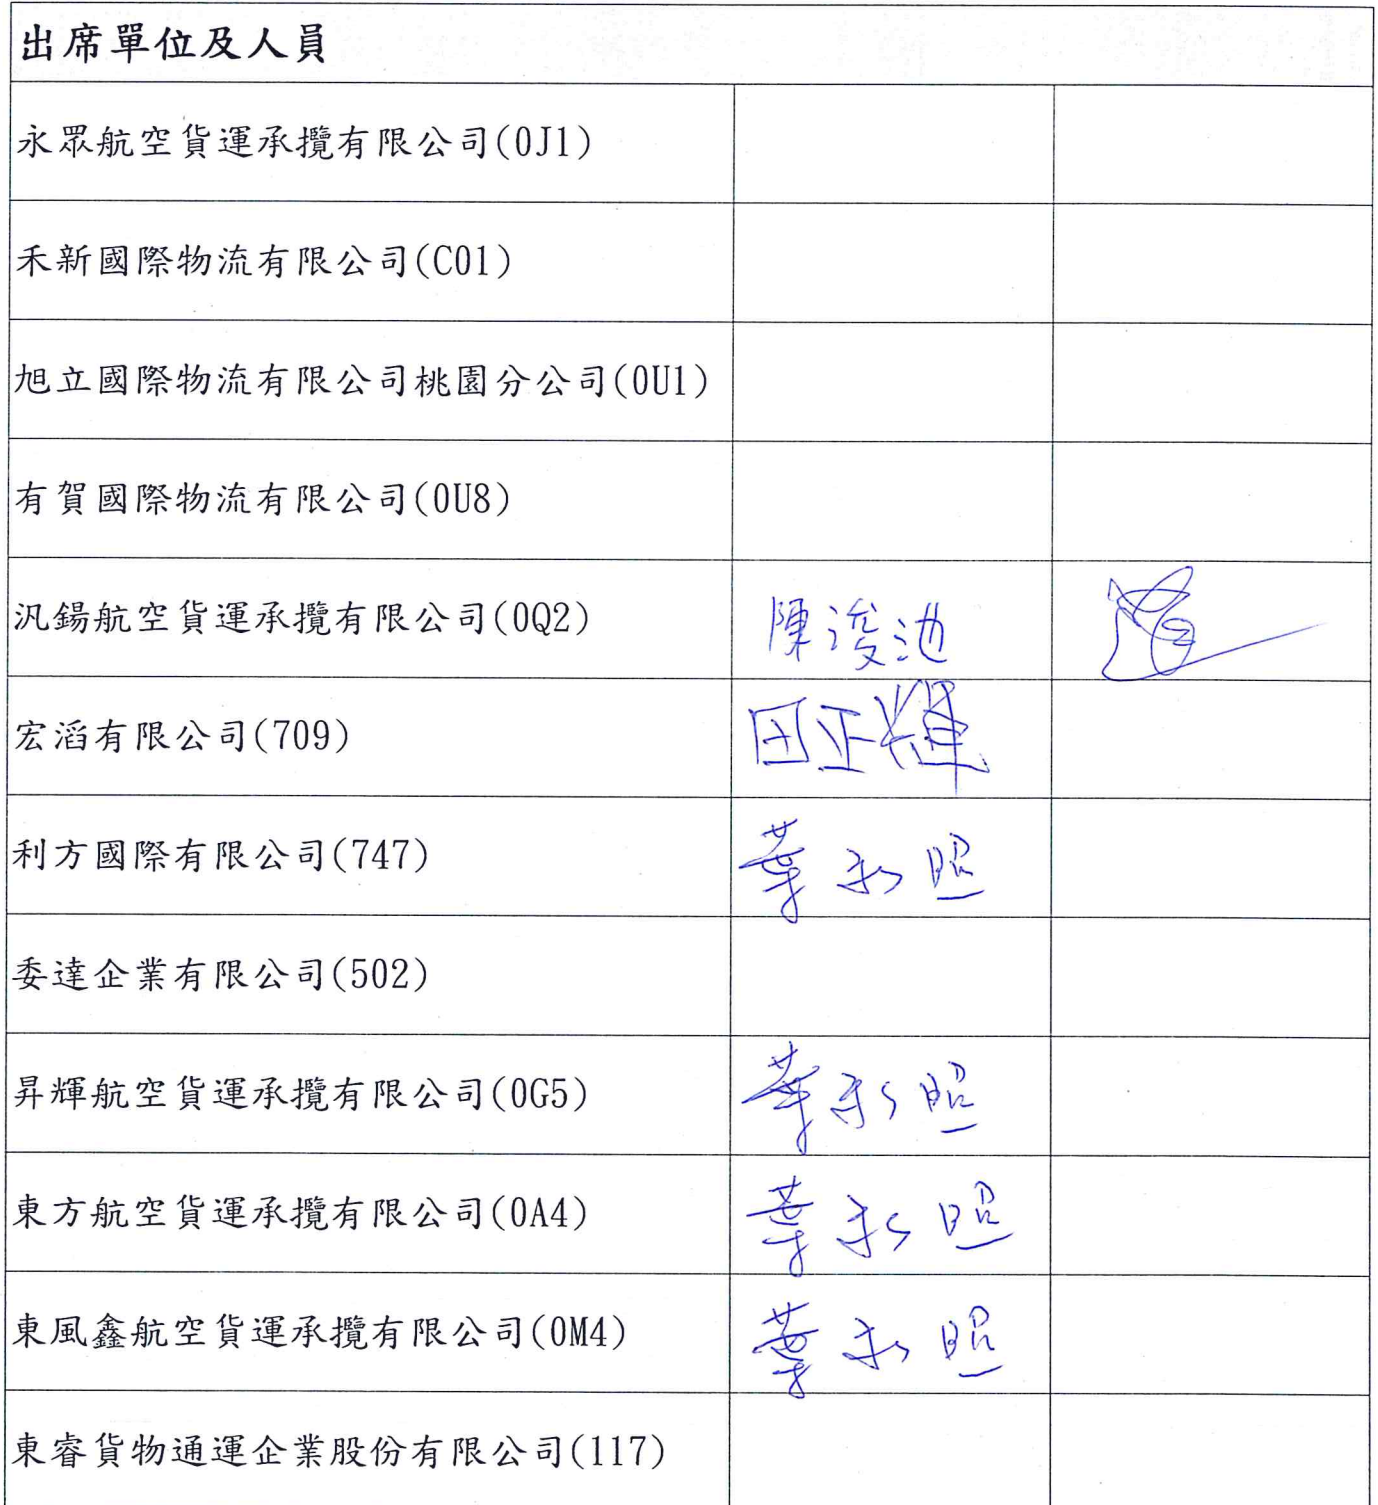 出席單位及人員
永眾航空貨運承攬有限公司(0J1)
禾新國際物流有限公司(C01)
旭立國際物流有限公司桃園分公司(0U1)
有賀國際物流有限公司(0U8)
汎錫航空貨運承攬有限公司(0Q2) 陳浚池
宏滔有限公司(709) 田正輝
利方國際有限公司(747) 葉永照
委達企業有限公司(502)
昇輝航空貨運承攬有限公司(0G5) 葉永照
東方航空貨運承攬有限公司(0A4) 葉永照
東風鑫航空貨運承攬有限公司(0M4) 葉永照
東睿貨物通運企業股份有限公司(117)